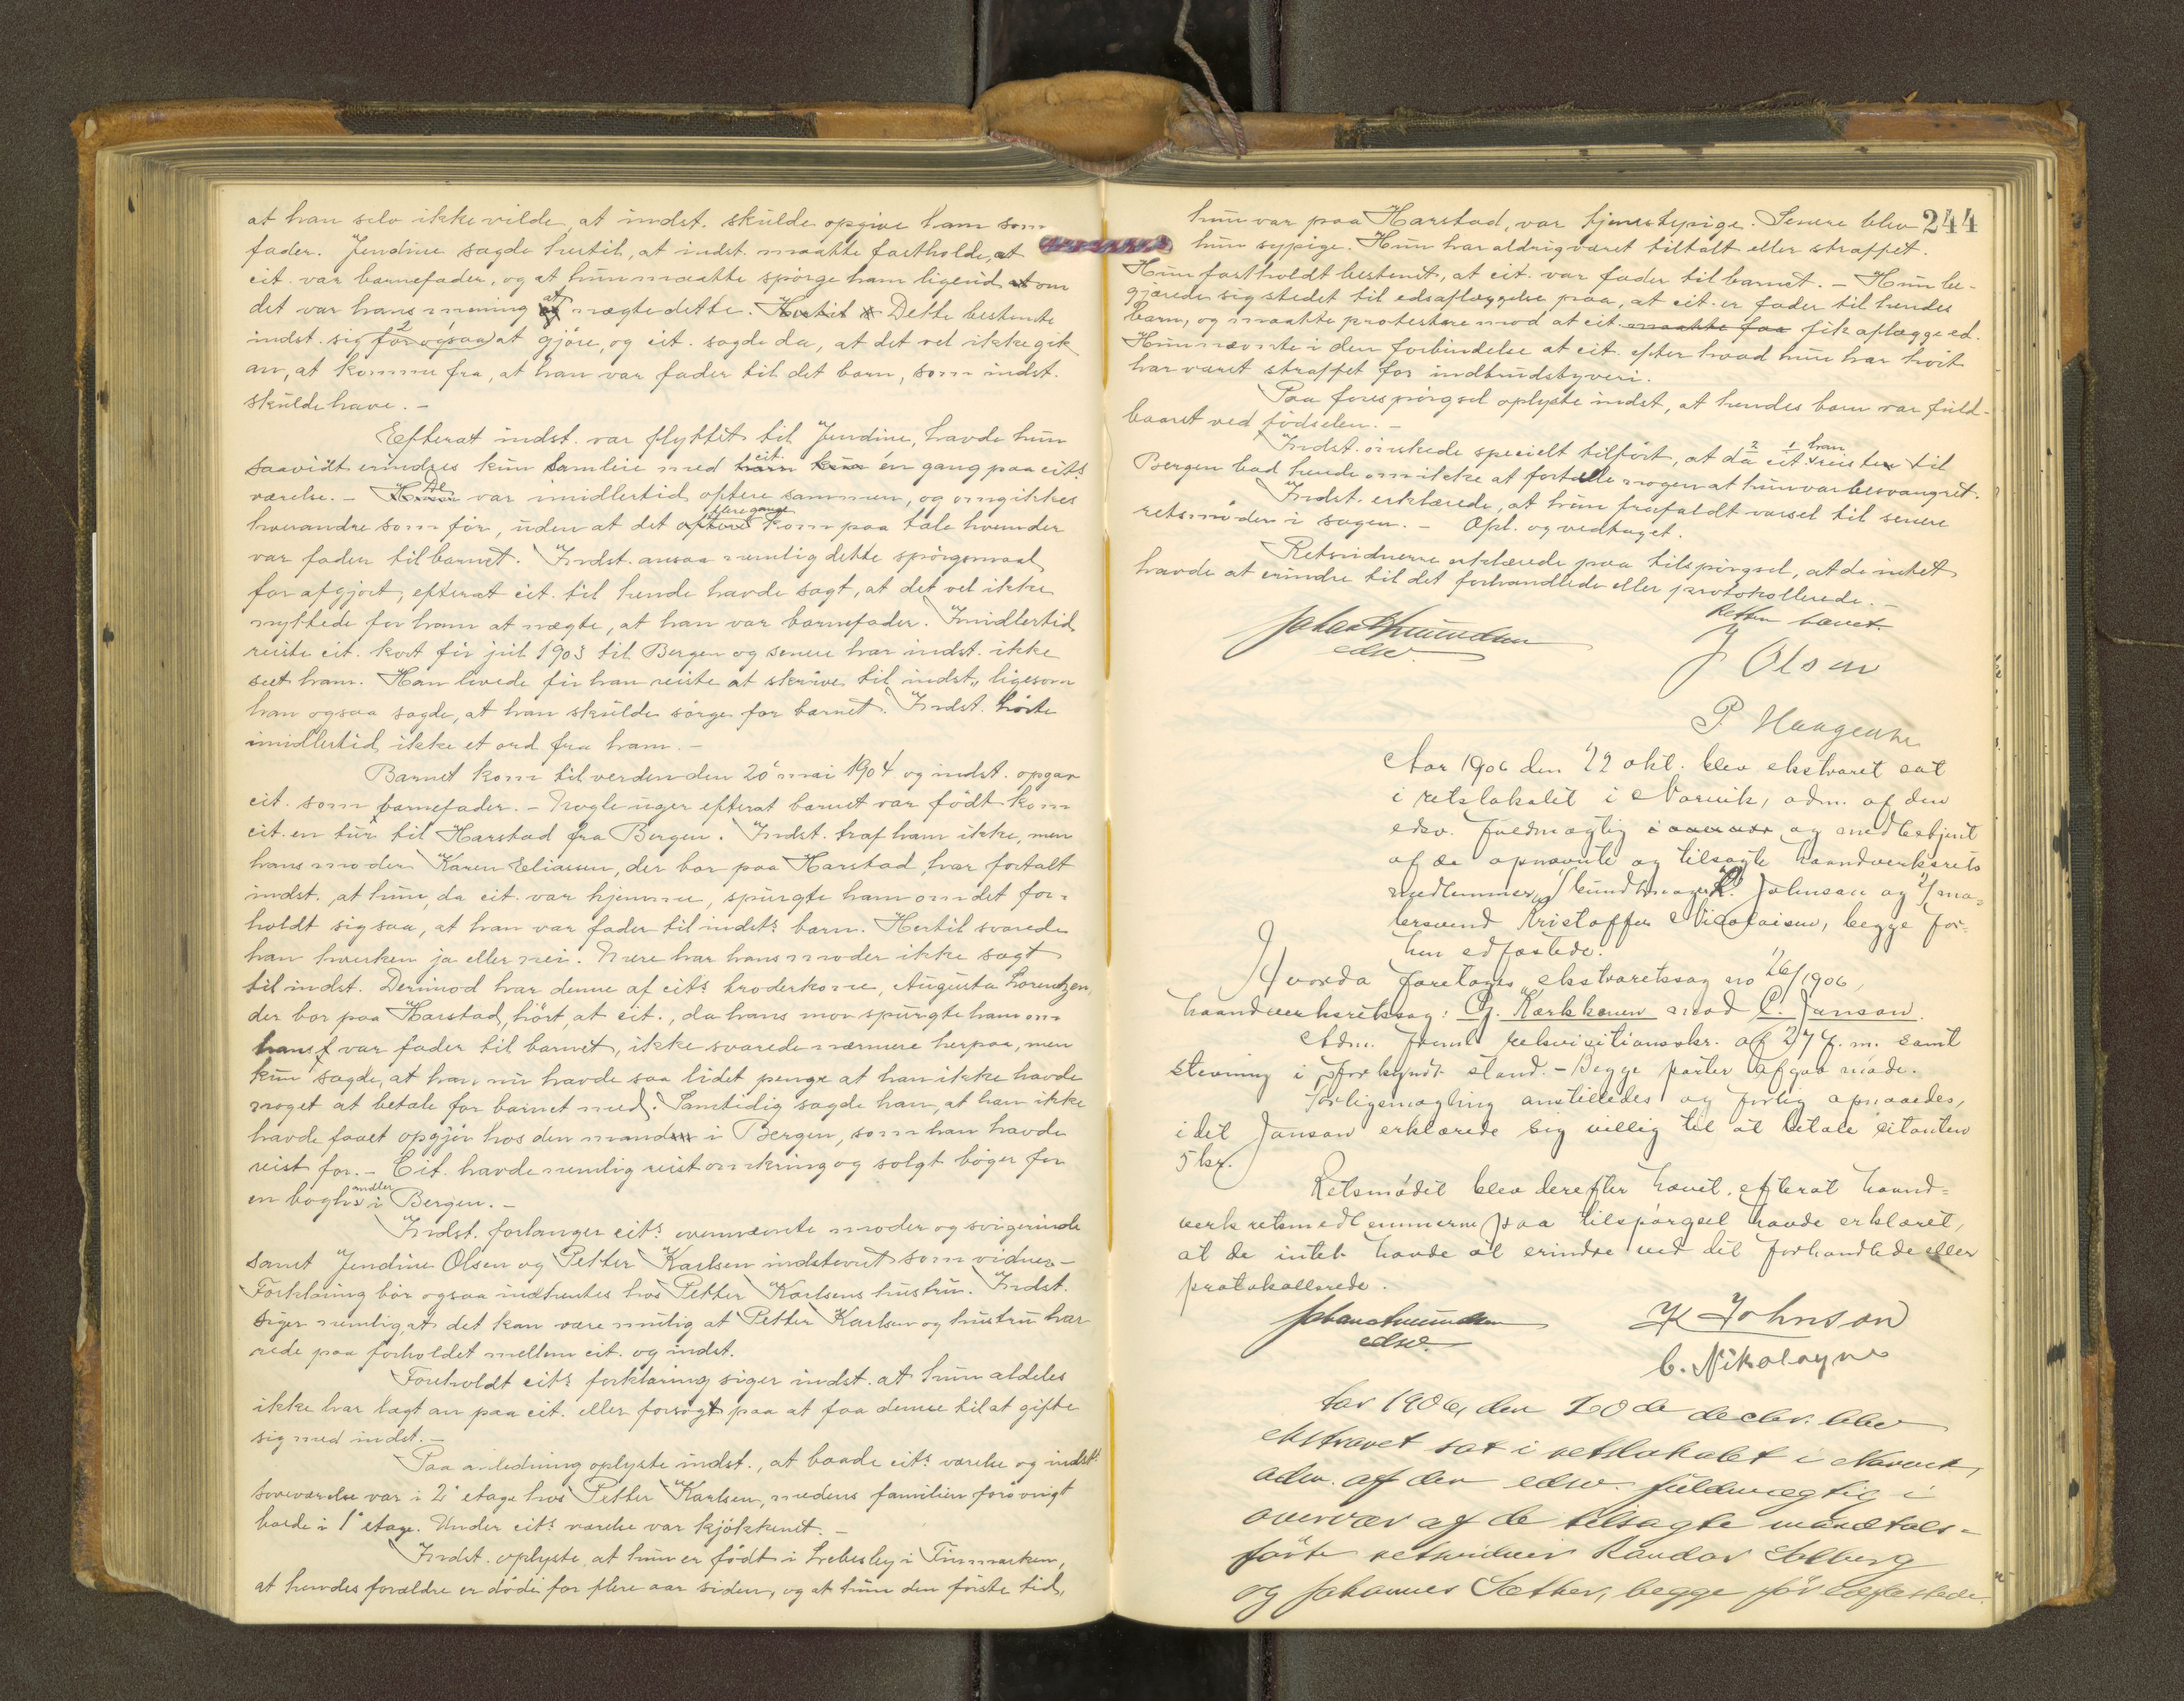 at han selv ikke vilde, at indst. skulde opgive ham som
fader. Jendine sagde hertil, at indst. maatte fastholde, at
cit. var barnefader, og at hun maatte spørge ham ligeud at om
det var hans mening at nægte dette. Hertil Dette bestemte
indst. sig for ogsaa at gjøre, og cit. sagde da, at det vel ikke gik
an, at komme fra, at han var fader til det barn, som indst.
skulde have. –
Efterat indst. var flyttet til Jendine, havde hun
saavidt erindres kun samleie med cit. én gang paa cits.
værelse. – De var imidlertid oftere sammen, og omgikkes
hverandre som før, uden at det flere gange kom paa tale hvem der
var fader til barnet. Indst. ansaa nemlig dette spørgsmaal
for afgjort, efterat cit. til hende havde sagt, at det vel ikke
nyttede for ham at nægte, at han var barnefader. Imidlertid
reiste cit. kort før jul 1903 til Bergen og senere har indst. ikke
seet ham. Han lovede før han reiste at skrive til indst., ligesom
han ogsaa sagde, at han skulde sørge for barnet. Indst. hørte
imidlertid ikke et ord fra ham. –
Barnet kom til verden den 20 mai 1904 og indst. opgav
cit. som barnefader. – Nogle uger efterat barnet var født kom
cit. en tur til Harstad fra Bergen. Indst. traf ham ikke, men
hans moder Karen Eliassen, der bor paa Harstad, har fortalt
indst. at hun, da cit. var hjemme, spurgte ham om det for-
holdt sig saa, at han var fader til indsts. barn. Hertil svarede
han hverken ja eller nei. Mere har hans moder ikke sagt
til indst. Derimod har denne af cits. broderkone, Augusta Lorentzen,
der bor paa Harstad, hørt, at cit., da hans mor spurgte ham om
han var fader til barnet, ikke svarede nærmere herpaa, men
kun sagde, at han nu havde saa lidet penge at han ikke havde
noget at betale for barnet med. Samtidig sagde han, at han ikke
havde faaet opgjør hos den mand i Bergen, som han havde
reist for. – Cit. havde nemlig reist omkring og solgt bøger for
en boghandler i Bergen. –
Indst. forlanger cits. ovennævnte moder og svigerinde
samt Jendine Olsen og Petter Karlsen indstevnet som vidner –
Forklaring bør ogsaa indhentes hos Petter Karlsens hustru. Indst.
siger nemlig, at det kan være mulig at Petter Karlsen og hustru har
rede paa forholdet mellem cit. og indst.
Foreholdt cits. forklaring siger indst. at hun aldeles
ikke har lagt an paa cit. eller forsøgt paa at faa denne til at gifte
sig med indst. –
Paa anledning oplyste indst., at baade cits. værelse og indsts.
soveværelse var i 2. etage hos Petter Karlsen, medens familien forøvrigt
boede i 1. etage. Under cits. værelse var kjøkkenet. –
Indst. oplyste, at hun er født i Lebesby i Finmarken,
at hendes forældre er døde for flere aar siden, og at hun den første tid,
244
hun var paa Harstad, var tjenestepige. Senere blev
hun sypige. Hun har aldrig været tiltalt eller straffet.
Hun fastholdt bestemt, at cit. var fader til barnet. – Hun be-
gjærede sig stedet til edsaflæggelse paa, at cit. er fader til hendes
barn, og maatte protestere mod at cit. maatte faa fik aflægge ed.
Hun nævnte i den forbindelse at cit. efter hvad hun har hørt
har været straffet for indbrudstyveri.
Paa forespørgsel oplyste indst., at hendes barn var fuld-
baaret ved fødselen. –
Indst. ønskede specielt tilført, at da cit. han reiste til
Bergen bad hende om ikke at fortælle nogen at hun var besvangret.
Indst. erklærede, at hun frafaldt varsel til senere
retsmøder i sagen. – Opl. og vedtaget.
Retsvidnerne erklærede paa tilspørgsel, at de intet
havde at erindre til det forhandlede eller protokollerede. –
Retten hævet.
edsv.
J Olsen
P. Haagensen
Aar 1906 den 22 okt. blev ekstraret sat
i retslokalet i Narvik, adm. af den
edsv. fuldmægtig og med betjent
af de opnævnte og tilsagte haandverksrets
medlemmer, 1/ K. Johnsen og 2/ ma-
lersvend Kristoffer Nicolaisen, begge før
hen edfæstede.
Hvorda foretoges ekstraretssag no 26/1906,
haandverksretssag: G. Kærkkænen mod C. Janson.
Adm. freml. rekvisitionsskr. af 27 f. m. samt
stevning i forkyndt stand. – Begge parter afgav møde.
Forligsmægling anstilledes og forlig opnaaedes,
idet Janson erklærede sig villig til at betale citanten
5 kr.
Retsmødet blev derefter hævet, efterat haand-
verksretsmedlemmerne paa tilspørgsel havde erklæret,
at de intet havde at erindre ved det forhandlede eller
protokollerede.
edsv.
K Johnson
C. Nikolaysen
Aar 1906, den 20de decbr. blev
ekstraret sat i retslokalet i Narvik,
adm. af den edsv. fuldmægtig i
overvær af de tilsagte mandtals-
førte retsvidner Randor Solberg
og Johannes Sæther, begge før edfæstede.